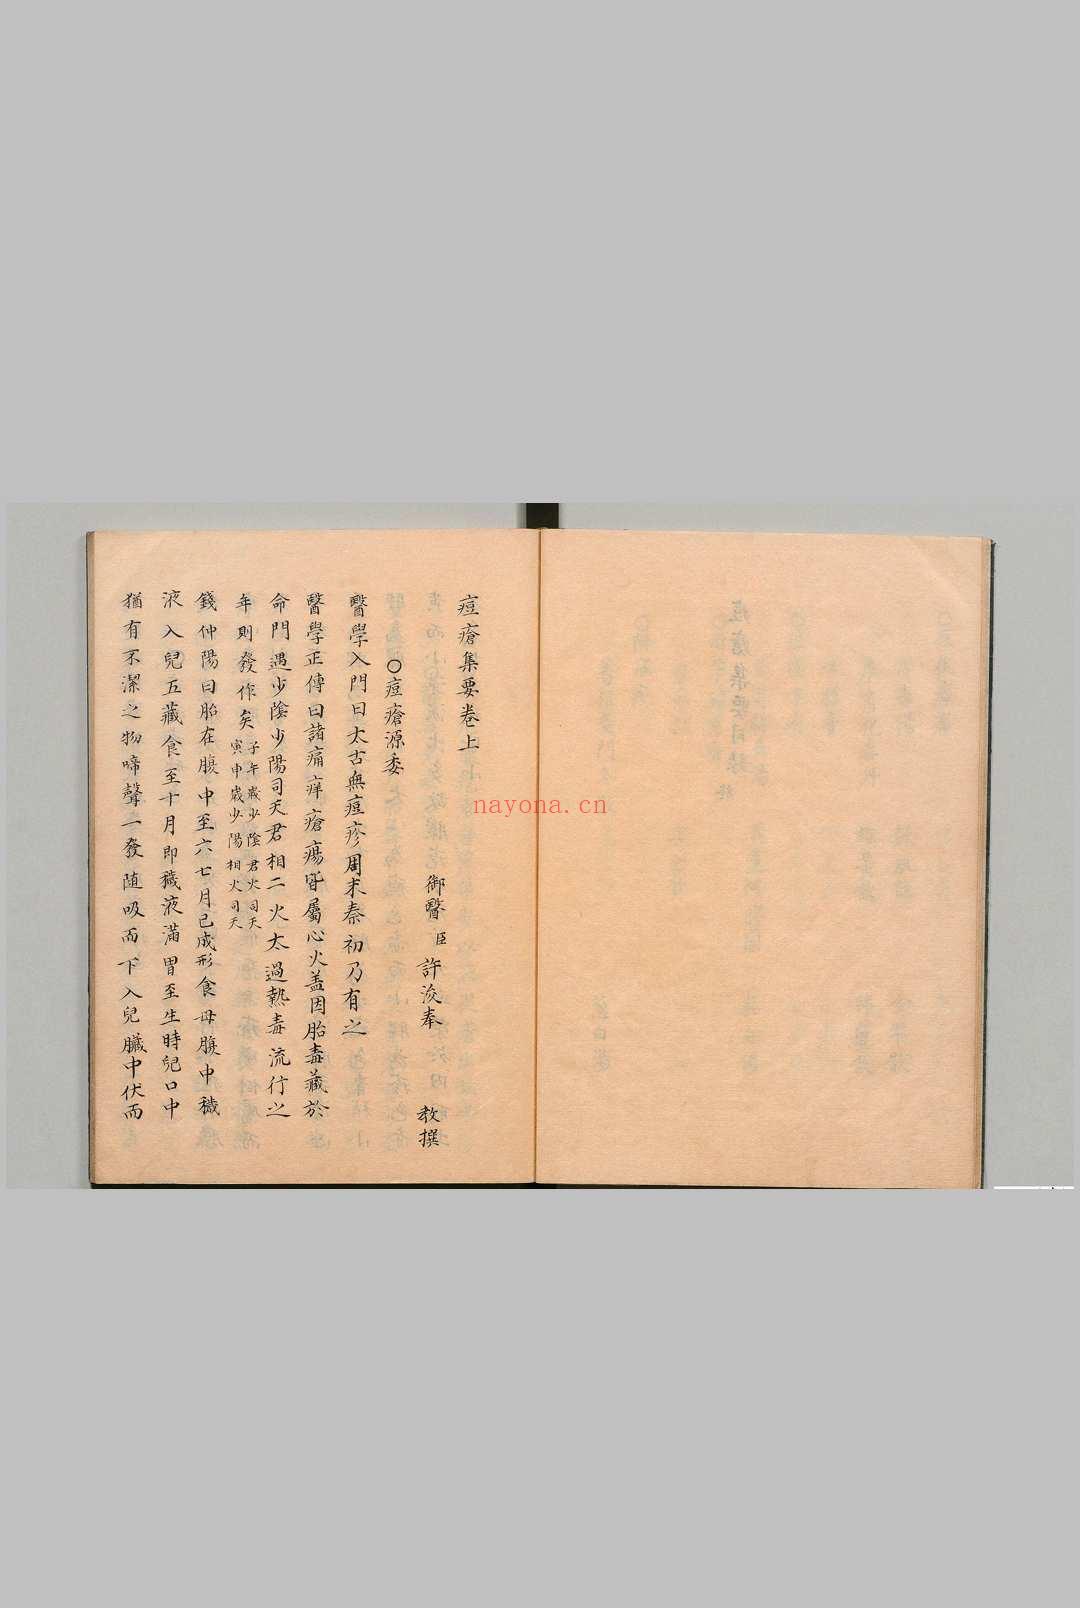 痘瘡集要卷上
御醫 臣 許浚奉 教撰
○痘瘡源委
醫學入門曰太古無痘疹周末秦初乃有之
醫學正傳曰諸痛痒瘡瘍皆屬心火盖因胎毒藏於
命門遇少陰少陽司天君相二火太過熱毒流行之
年則發作矣 子午歲少陰君火司天
寅申歲少陽相火司天
錢仲陽曰胎在腹中至六七月已成形食母腹中穢
液入兒五藏食至十月即穢液滿胃至生時兒口中
猶有不潔之物啼聲一發随吸而下入兒臟中伏而
痘瘡集要目錄
nayona.cn